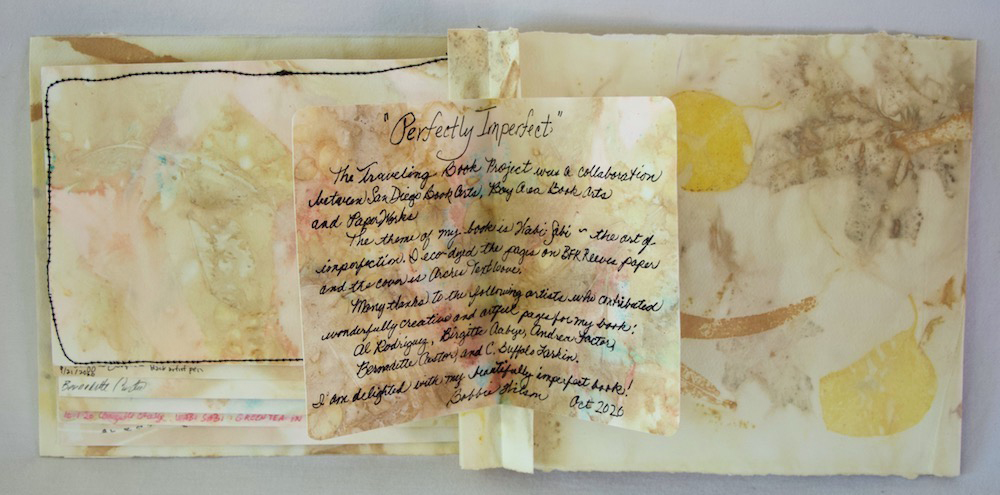 "Perfectly Imperfect"
The Traveling Book Project was a collaboration
between San Diego Book Arts, Bay Area Book Arts
and PaperWorks
The theme of my book is Wabi Sabi ~ the art of
imperfection. I eco-dyed the pages on BFK Reeves paper
and the cover is Arches Text Wove.
Many thanks to the following artists who contributed
wonderfully creative and artful pages for my book:
Al Rodriguez, Birgitte Aabye, Andrea Pastor,
Bernadette Pastor, and C. Buffalo Larkin.
I am delighted with my beautifully imperfect book!
Bobbie Wilson Oct 2020
Black artist pen
WABI SABI GREEN TEA IN